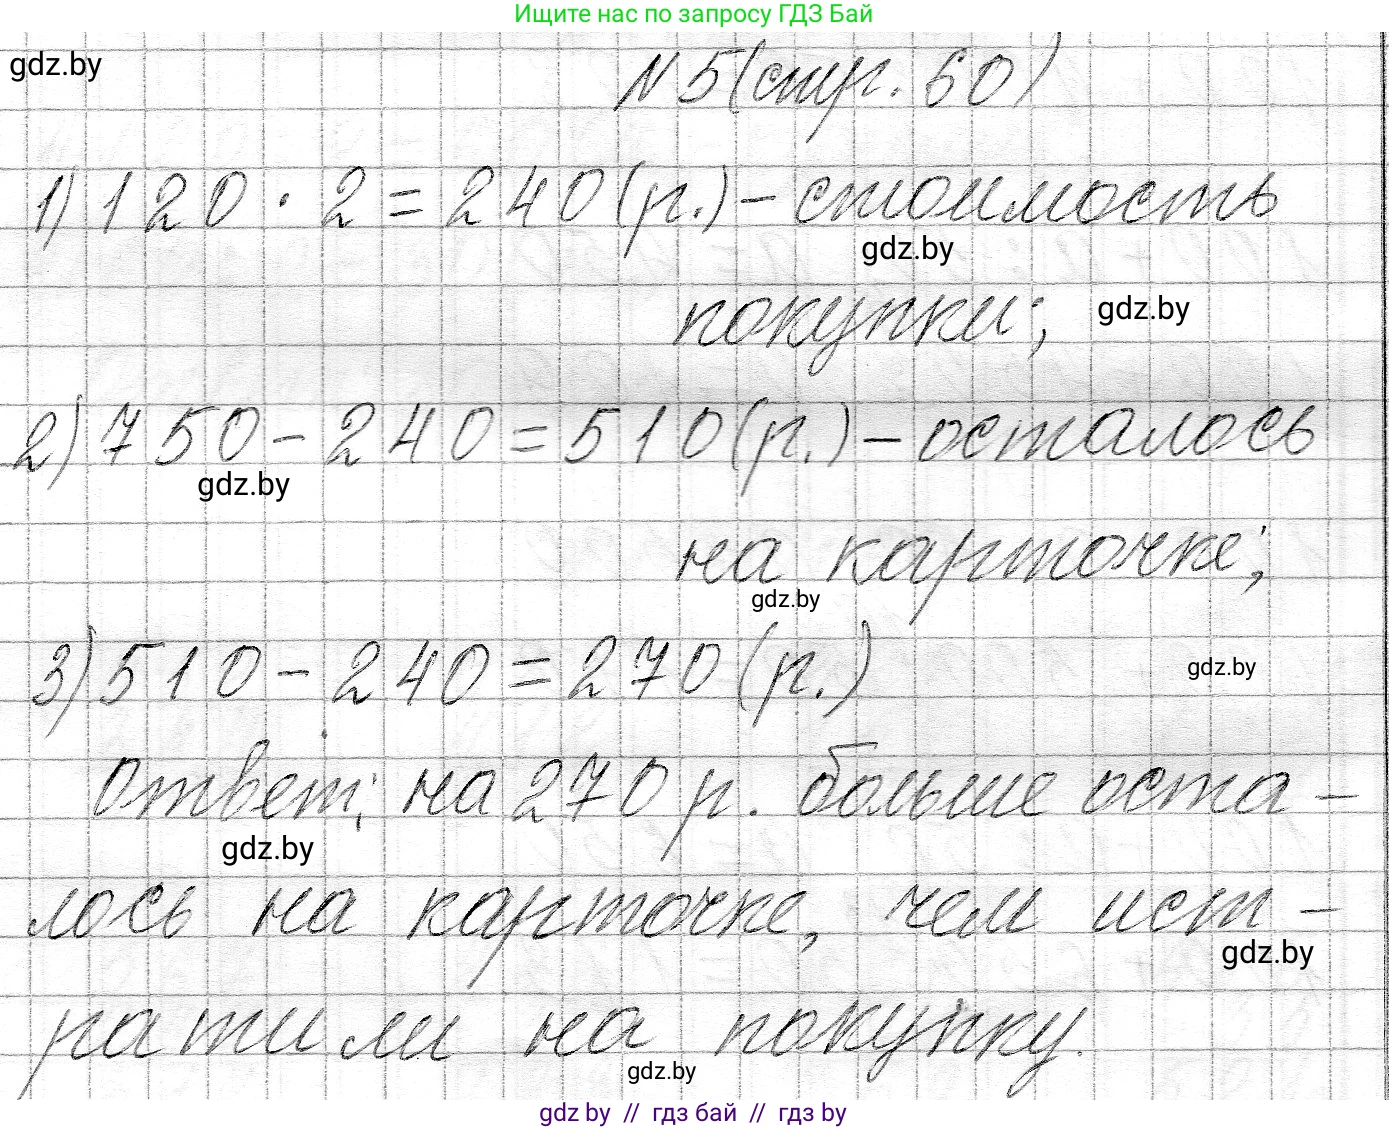 Ищите нас по запросу ГДЗ Бай
gdz.by
N 5 (стр. 60)
1) 120 · 2 = 240 (р.) - стоимость
gdz.by
покупки; gdz.by
2) 750 - 240 = 510 (р.) - осталось
gdz.by
на карточке;
gdz.by
3) 510 - 240 = 270 (р.)
gdz.by
Ответ: на 270 р. больше оста-
gdz.by
лось на карточке, чем ист-
gdz.by
ратили на покупку.
gdz.by
gdz by // гдз бай // гдз by